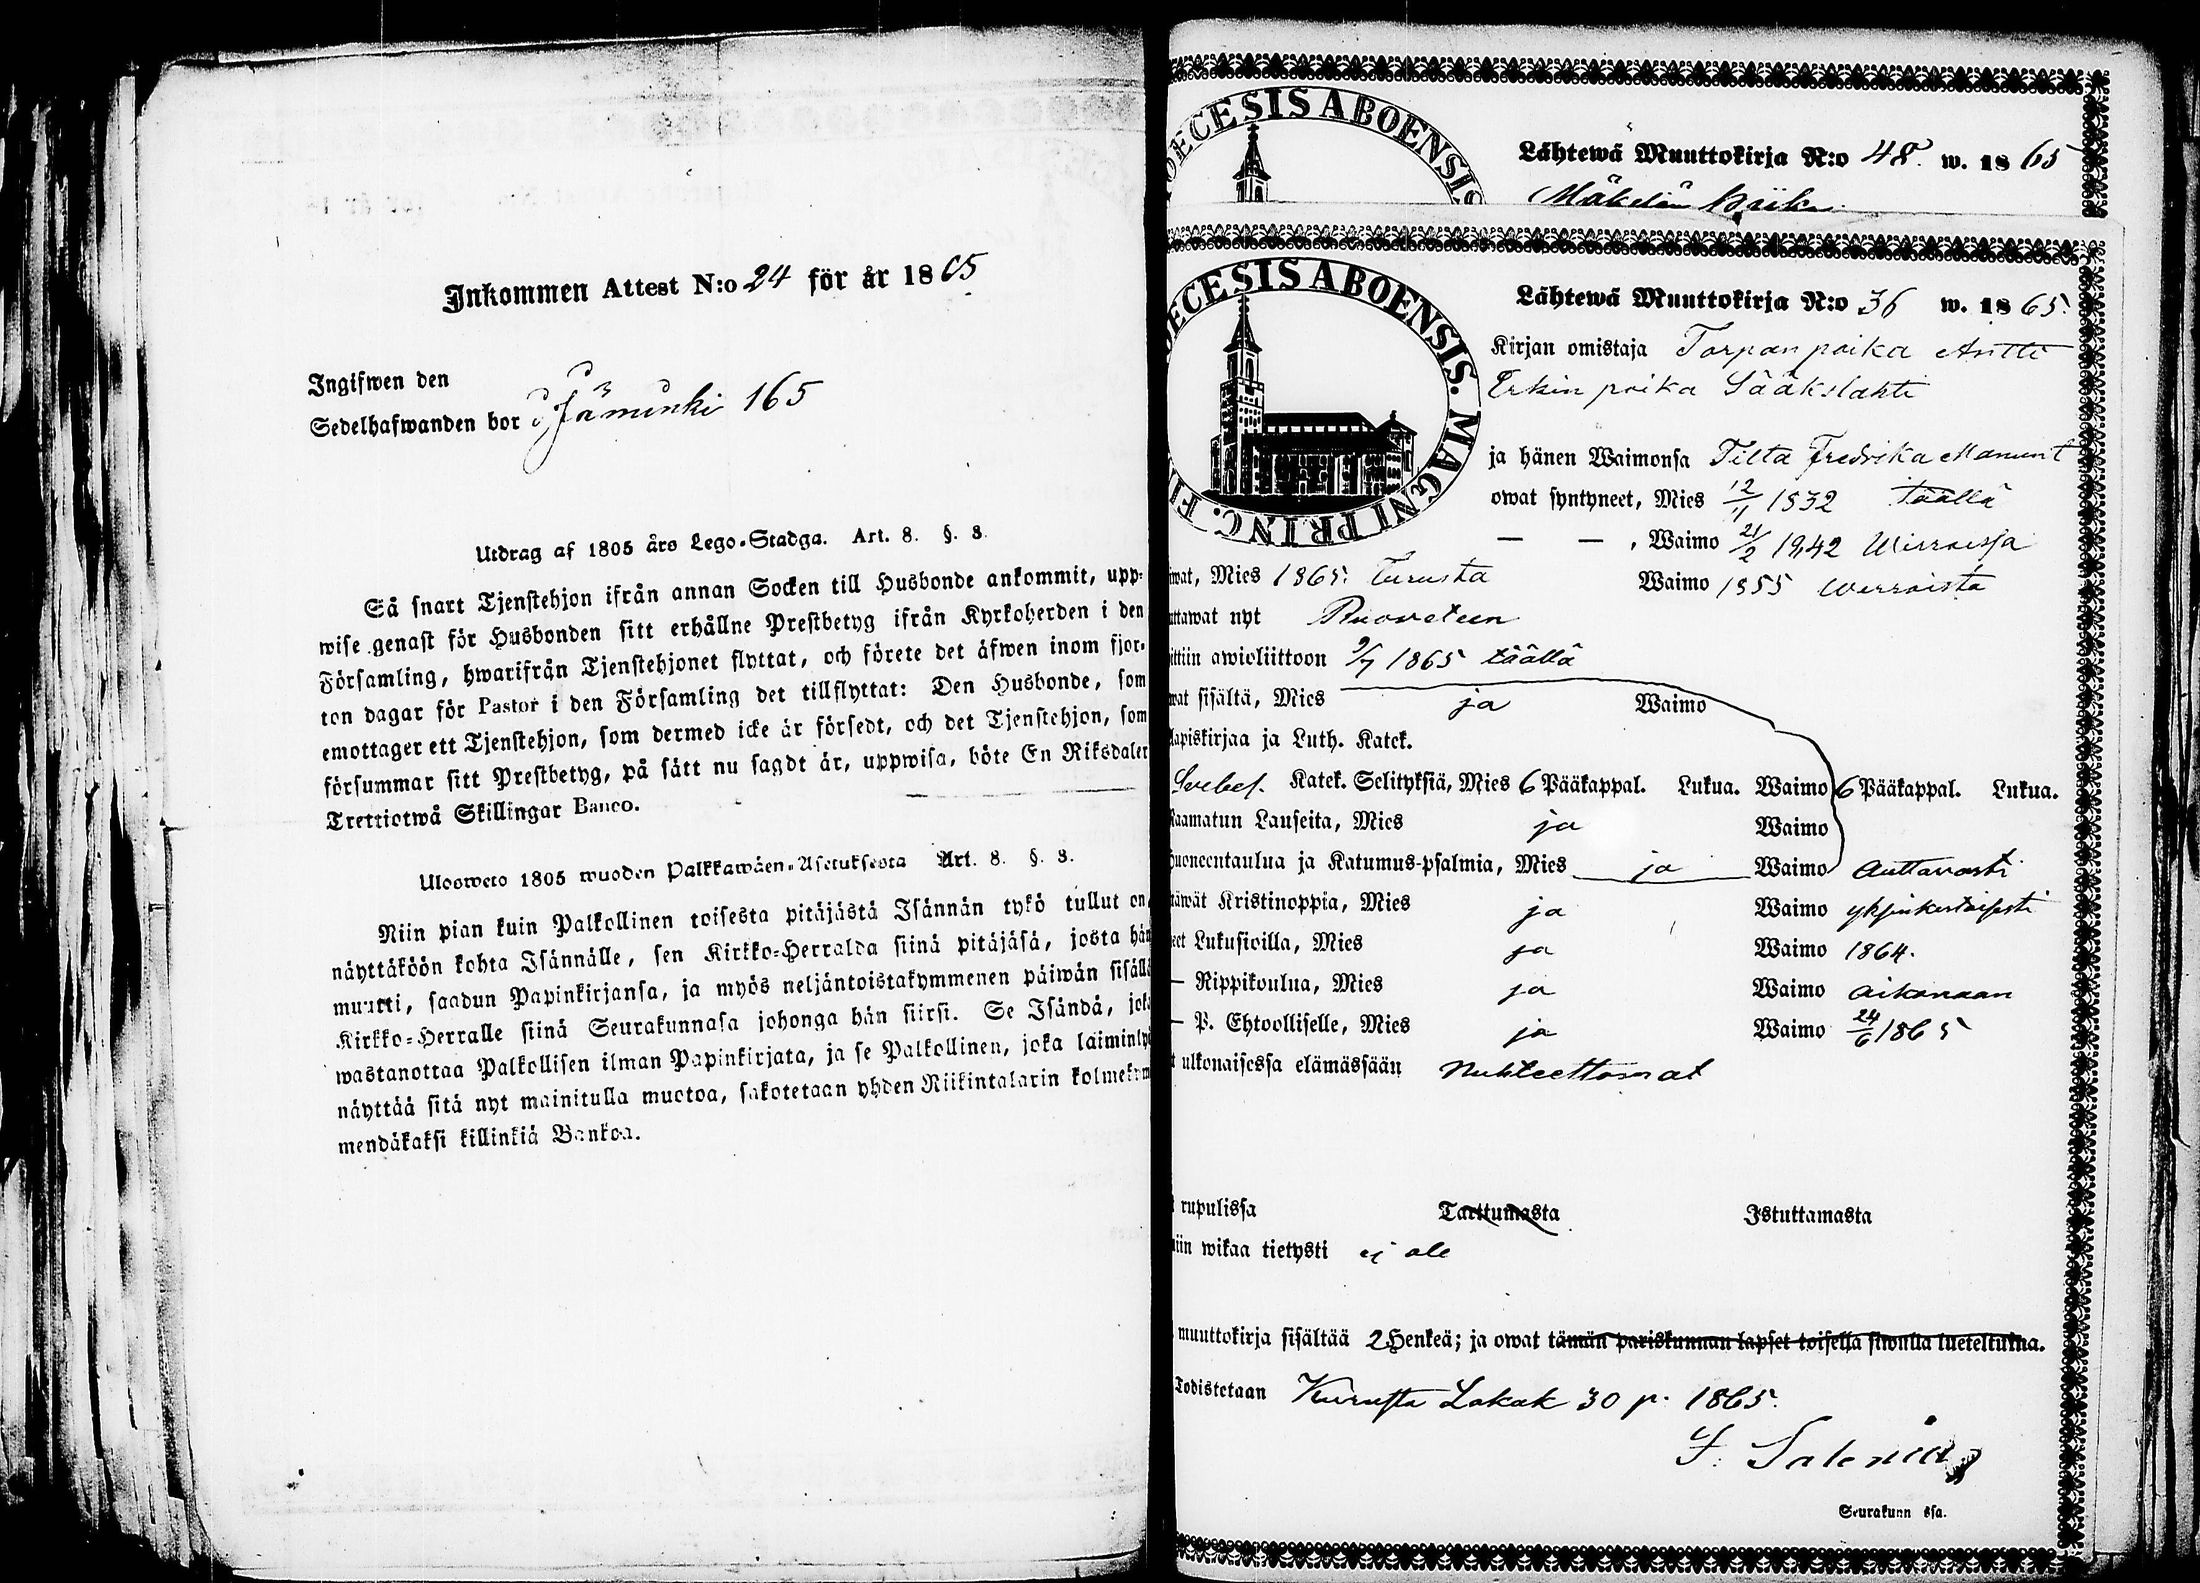 Inkommen Attest N:o 24 för år 1865
Ingifwen den
Sedelhafwanden bor i Jäminki 165
Utdrag af 1805 års Lego-Stadga. Art. 8. §. 3.
Så snart Tjenstehjon ifrån annan Socken till Husbonde ankommit, upp-
wise genast för Husbonden sitt erhållne Prestbetyg ifrån Kyrkoherden i den
Församling, hwarifrån Tjenstehjonet flyttat, och förete det äfwen inom fjor-
ton dagar för Pastor i den Församling det tillflyttat: Den Husbonde, som
emottager ett Tjenstehjon, som dermed icke är försedt, och det Tjenstehjon, som
försummar sitt Prestbetyg, på sätt nu sagdt är, uppwisa, böte En Riksdaler
Trettiotwå Skillingar Banco.
Uloswето 1805 wuoden Palkkawäen-Asetuksesta Art. 8. §. 3.
Niin pian kuin Palkollinen toisesta pitäjästä Isännän tykö tullut on,
näyttäköön kohta Isännälle, sen Kirkko-Herralda siinä pitäjäsä, josta hän
muutti, saadun Papinkirjansa, ja myös neljäntoistakymmenen päiwän sisällä
Kirkko-Herralle siinä Seurakunnasa johonga hän siirsi. Se Isändä, joka
wastanottaa Palkollisen ilman Papinkirjata, ja se Palkollinen, joka laiminly
näyttää sitä nyt mainitulla muotoa, sakotetaan yhden Riikintalarin kolmekym
mendäkaksi killinkiä Bankoa.
OECESIS ABOENSIS
Lähtewä Muuttokirja N:o 48. w. 1865
Mäkelän
OECESIS ABOENSIS. MAGNI PRINC. FI
Lähtewä Muuttokirja N:o 36 w. 1865.
Kirjan omistaja Torpan poika Antti
Erkin poika Sääkslahti
ja hänen Waimonsa Tilta Fredrika Manunt
owat syntyneet, Mies 12/11 1832 täällä
— — , Waimo 21/2 1842 Wirroissa
iwat, Mies 1865. Turusta Waimo 1855 Wirroista
uttawat nyt Ruoweteen
ittiin awioliittoon 9/7 1865 täällä
wat sisältä, Mies ja Waimo
lapiskirjaa ja Luth. Katek.
Svebel. Katek. Selityksiä, Mies 6 Pääkappal. Lukua. Waimo 6 Pääkappal. Lukua.
Raamatun Lauseita, Mies ja Waimo
huoneentaulua ja Katumus-psalmia, Mies ja Waimo auttavasti
täwät Kristinoppia, Mies ja Waimo yksinkertaisesti
eet Lukusioilla, Mies ja Waimo 1864.
— Rippikoulua, Mies ja Waimo aikanaan
— P. Ehtoolliselle, Mies ja Waimo 24/6 1865
t ulkonaisessa elämässään Nuhteettomat
t rupulissa Tarttumasta Istuttamasta
niin wikaa tietysti ej ole
muuttokirja sisältää 2 Henkeä; ja owat tämän pariskunnan lapset toisella siwulla lueteltuina.
Todistetaan Kurusta Lokak 30 p. 1865.
Seurakunn ssa.